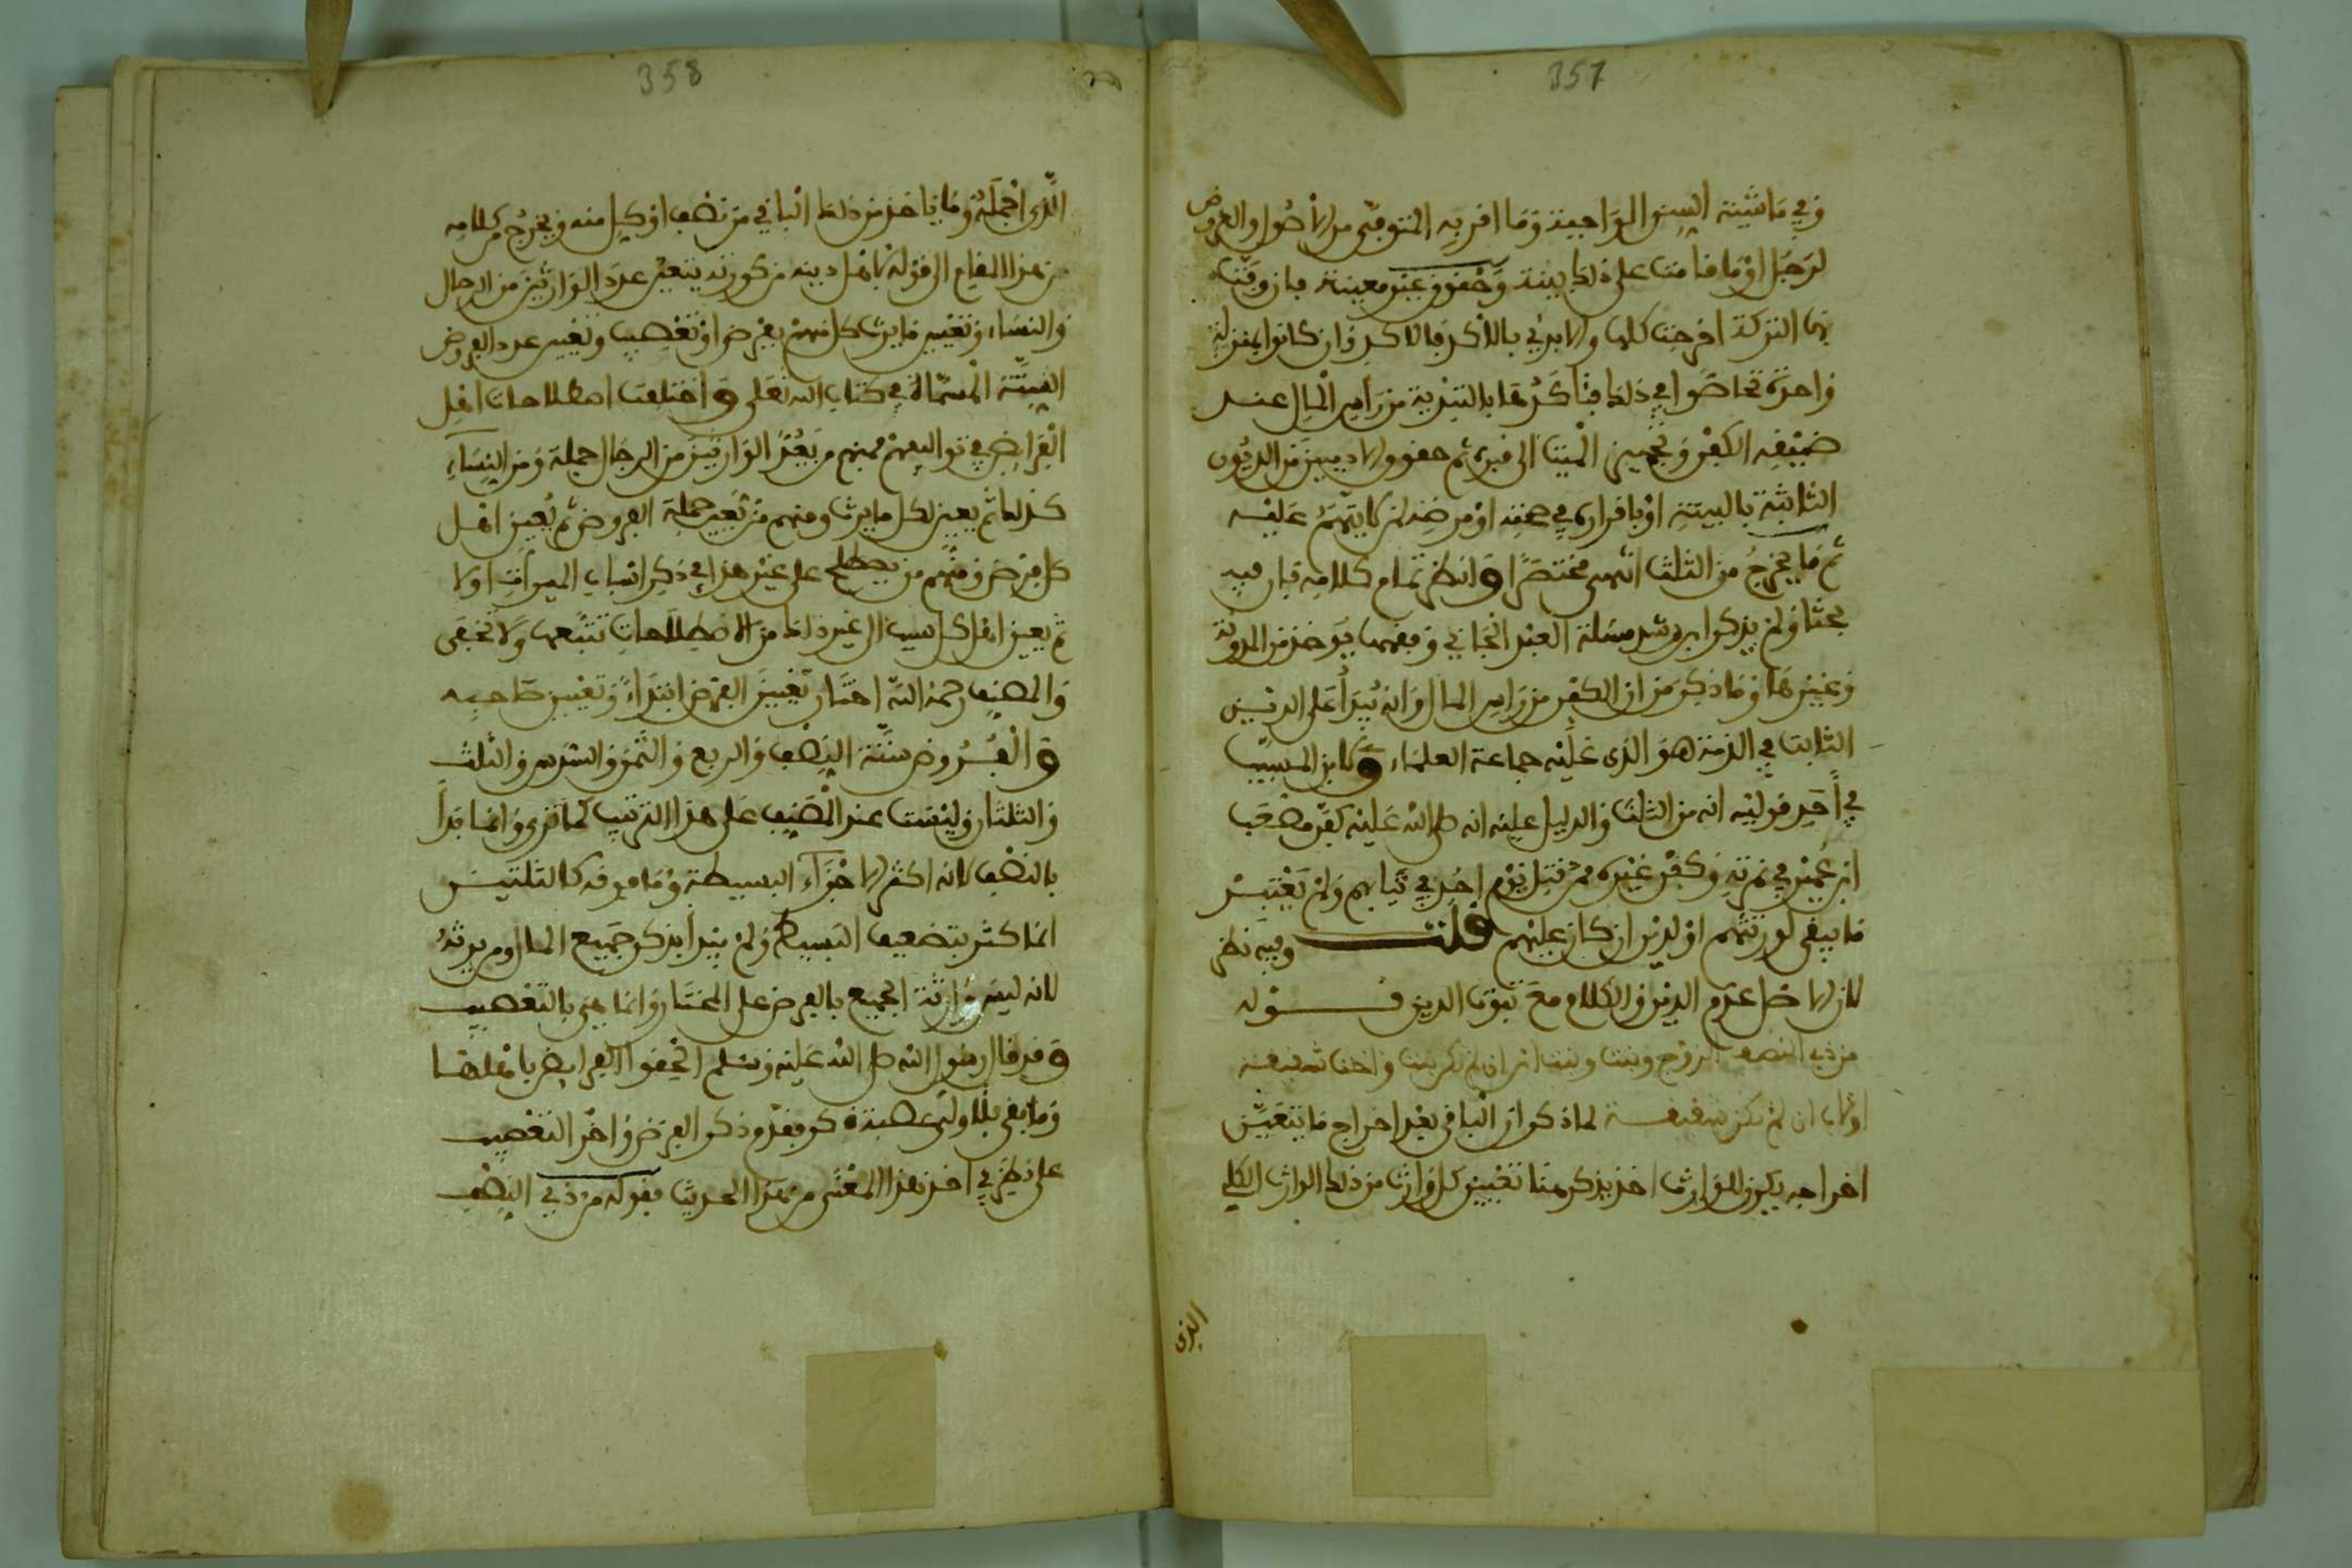 357
وفي ماشية السن الواجبة وما اقر به المتوفى من الاصول والعروض
لرجل او ما قامت على ذلك بينة وحقوق غير معينة فان وفت
بها التركة اخرجت كلها والا بدئ بالاكد فالاكد وان كانوا بمنزلة
واحدة تحاصوا في ذلك فتأكدها بالتبدية من رأس المال عند
ضيقه الكفن وتجهيز الميت الى قبره ثم حقوق الادميين من الديون
الثابتة بالبينة او باقراره في صحته او مرضه لمن لا يتهم عليه
ثم ما يخرج من الثلث انتهى مختصرا وانظر تمام كلامه فان فيه
بحثا ولم يذكر ابن رشد مسئلة العبد الجاني وفقهها يوخذ من المدونة
وغيرها وما ذكر من ان الكفن من رأس المال وانه يبدأ على الدين
الثابت في الذمة هو الذي عليه جماعة العلماء ولابن المسيب
في احد قوليه انه من الثلث والدليل عليه انه صلى الله عليه كفن مصعب
ابن عمير في نمرته وكفن غيره ممن قتل يوم احد في ثيابهم ولم يعتبر
ما يبقى لورثتهم او لدين ان كان عليهم قلت وفيه نظر
لان الاصل عدم الدين والكلام مع ثبوت الدين قوله
من ذي النصف الزوج وبنت وبنت ابن ان لم تكن بنت واخت شقيقة
او لاب ان لم تكن شقيقة لما ذكر ان الباقي بعد اخراج ما يتعين
اخراجه يكون للوارث اخذ يذكر هنا تعيين كل وارث من ذلك الوارث الكلي
الذي
358
الذي اجمله وما ياخذ من ذلك الباقي من نصف او كل منه ويخرج من كلامه
من هذا المقام الى قوله لاهل دينه من كورته يتعين عدد الوارثين من الرجال
والنساء وتعيين ما يرث كل منهم بفرض او تعصيب وتعيين عدد الفروض
الستة المسماة في كتاب الله تعلى واختلفت اصطلاحات اهل
الفرائض في تواليفهم فمنهم من يعد الوارثين من الرجال جملة ومن النساء
كذلك ثم يعين لكل ما يرث ومنهم من يعين جملة الفروض ثم يعين اهل
كل فرض ومنهم من يصطلح على غير هذا في ذكر اسباب الميراث اولا
ثم يعين اهل كل سبب الى غير ذلك من الاصطلاحات تتبعها ولا تخفى
والمصنف رحمه الله اختار تعيين الفرض ابتداء وتعيين صاحبه
والفروض ستة النصف والربع والثمن والسدس والثلث
والثلثان وليست عند المصنف على هذا الترتيب كما ترى وانما بدأ
بالنصف لانه اكثر الاجزاء البسيطة وما فوقه كالثلثين
انما كثر بتضعيف البسيط ولم يبدأ بذكر جميع المال ومن يرثه
لانه ليس وارثة الجميع بالفرض على المختار وانما هي بالتعصيب
وقد قال رسول الله صلى الله عليه وسلم الحقوا الفرائض باهلها
وما بقي فلاولى عصبة ذكر فقدم ذكر الفرض واخر التعصيب
على نظر في اخذ هذا المعنى من هذا الحديث فقوله من ذي النصف